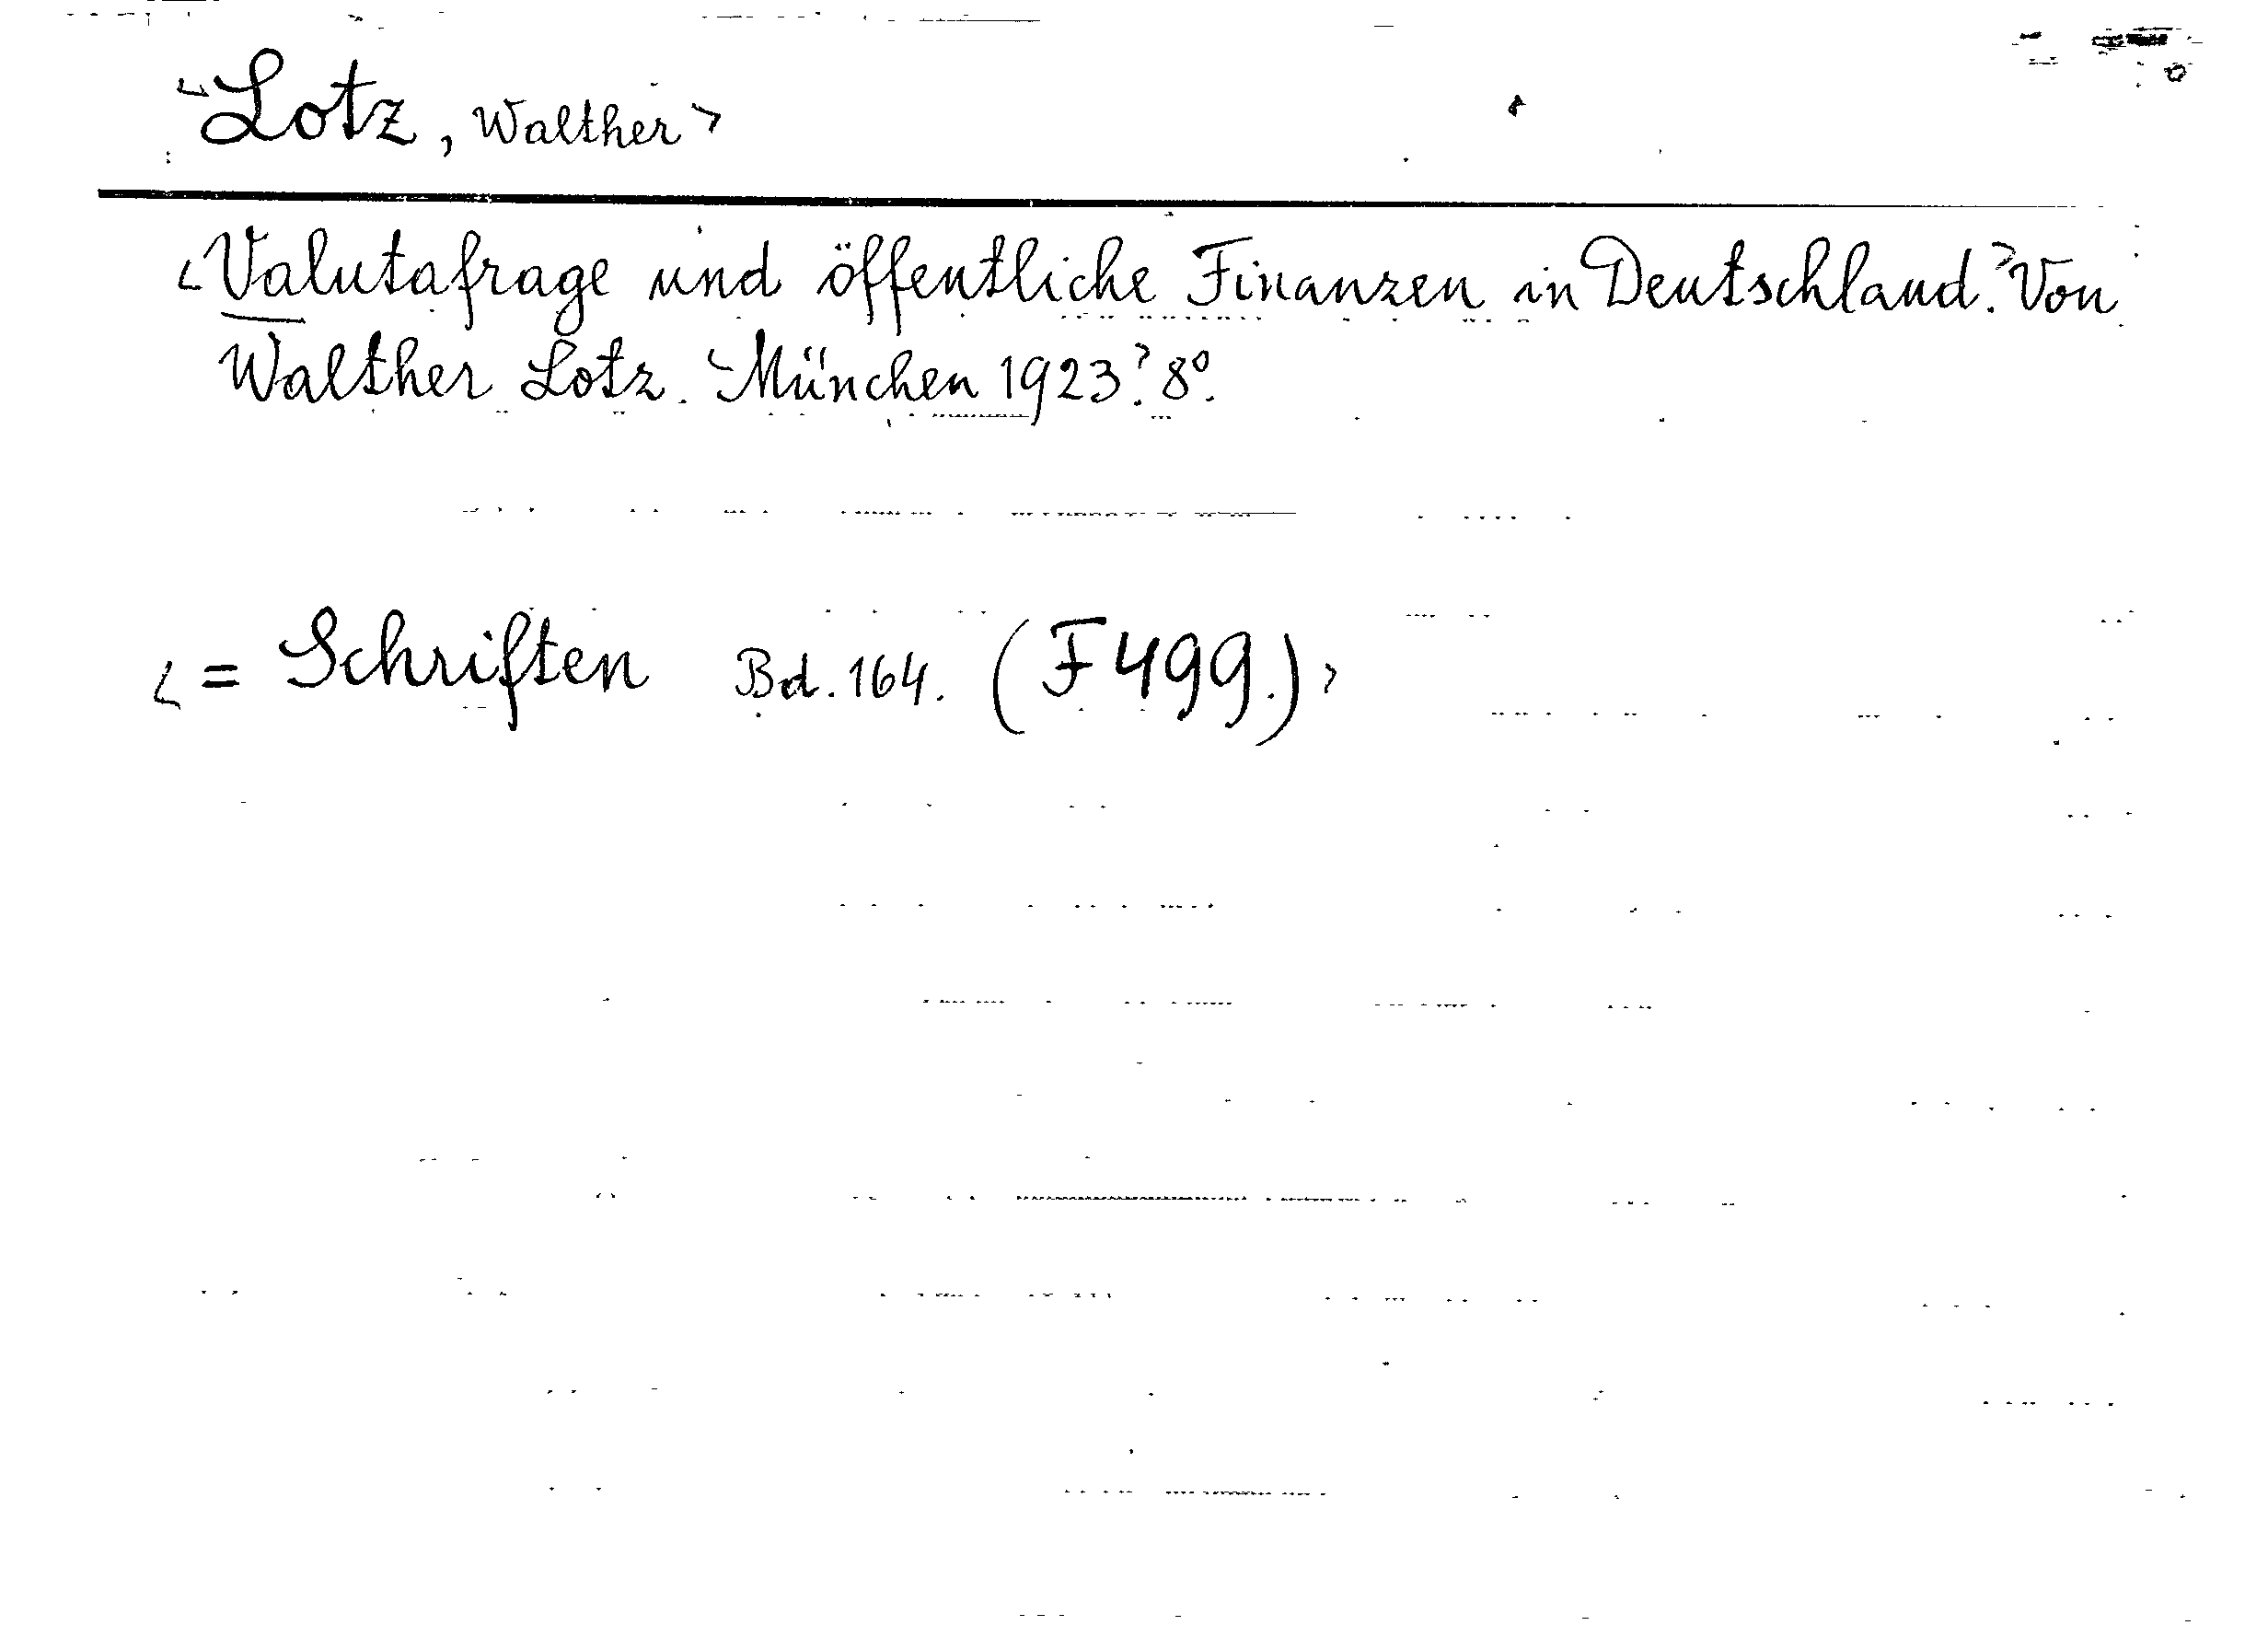 <Lotz, Walther>
<Valutafrage und öffentliche Finanzen in Deutschland.> Von
Walther Lotz. <München 1923.> 8°.
<= Schriften Bd. 164. (F 499.)>